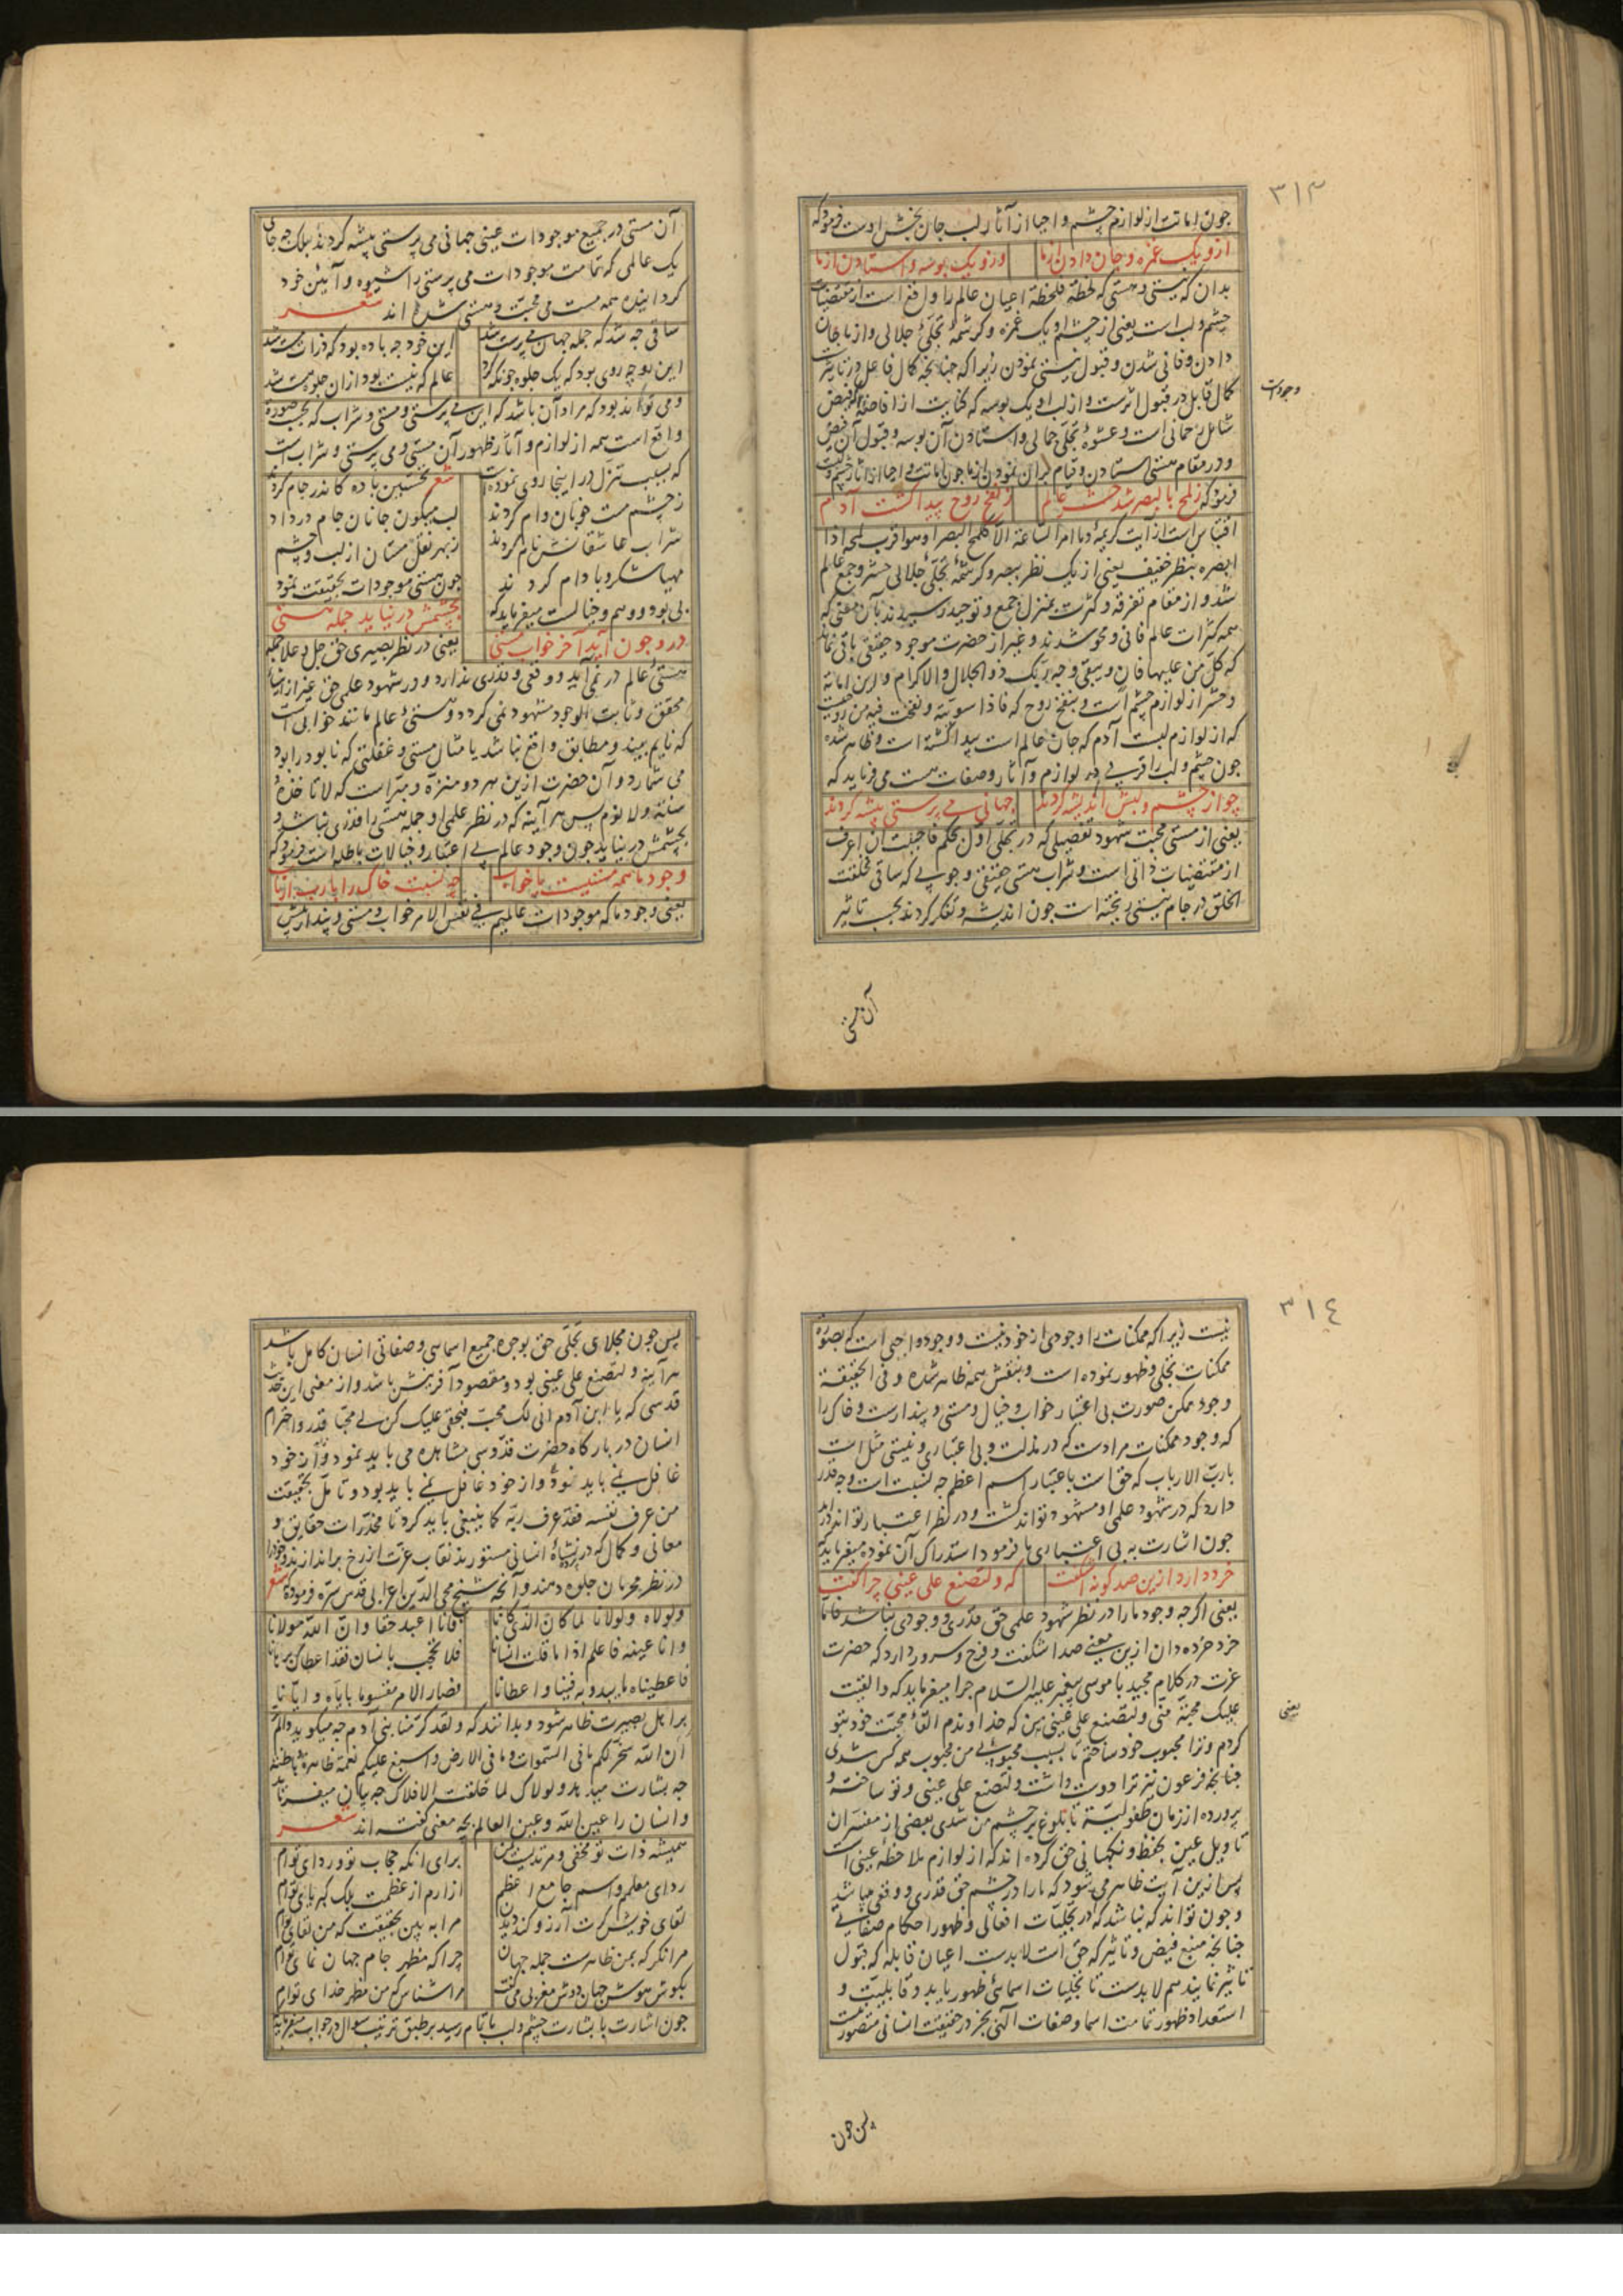 ٣١٣
چون اماتت از لوازم چشم و احیا از آثار لب جان بخش اوست فرمود که
ازو یک غمزه و جان دادن از ما وزو یک بوسه و استادن از ما
بدان که نیستی و هستی که لحظة فلحظة اعیان عالم را واقع است از مقتضیات
چشم و لب است یعنی از چشم او یک غمزه و کرشمهٔ تجلّی جلالی و از ما جان
دادن و فانی شدن و قبول نیستی نمودن زیرا که چنانچه کمال فاعل در تاثیرست
کمال قابل در قبول اثرست و از لب او یک بوسه که کنایت از افاضهٔ فیض
وجودست
شامل رحمانی است و عشوهٔ تجلّی جمالی و استادن آن بوسه و قبول آن فیض
و در مقام هستی استادن و قیام بران نمودن از ما چون اماتت و احیا از آثار چشم و لبست
فرمود که ز لمح بالبصر شد حشر عالم ز نفخ روح پیدا گشت آدم
اقتباس است از آیت کریمهٔ و ما امر الساعة الا کلمح البصر او هو اقرب لمحه اذا
ابصره بنظر خفیف یعنی از یک نظر ببصر و کرشمهٔ تجلّی جلالی حشر و جمع عالم
شد و از مقام تفرقه و کثرت بمنزل جمع و توحید رسیدند بآن معنی که
همه کثرات عالم فانی و محو شدند و غیر از حضرت موجود حقیقی باقی نماند
که کل من علیها فان و یبقی وجه ربک ذو الجلال والاکرام و این اماتة
و حشر از لوازم چشم است و بنفخ روح که فاذا سویته و نفخت فیه من روحیست
که از لوازم لبست آدم که جان عالم است پیدا گشته است و ظاهر شده
چون چشم و لب را قرب در لوازم و آثار و صفات هست می فرماید که
چو از چشم و لبش اندیشه کردند جهانی می پرستی پیشه کردند
یعنی از مستی محبت شهود تفصیلی که در تجلی اول بحکم فاحببت ان اعرف
از مقتضیات ذاتی است و شراب هستی حقیقی وجوبی که ساقی فخلقت
الخلق در جام نیستی ریخته است چون اندیشه و تفکر کردند بحسب تاثیر
آن مستی
آن مستی در جمیع موجودات عینی جهانی می پرستی پیشه کردند بلک چه جای
یک عالمی که تمامت موجودات می پرستی را شیوه و آیین خود
گردانیده همه مست می محبت و هستی شده اند شعر
ساقی چه شد که جمله جهان می پرست شد این خود چه باده بود که ذرات مست شد
این رو چه روی بود که یک جلوه چونکه کرد عالم که نیست بود ازان جلوه هست شد
و می تواند بود که مراد آن باشد که این می پرستی و مستی و شراب که بحسب صورة
واقع است همه از لوازم و آثار ظهور آن مستی و می پرستی و شراب است
که بسبب تنزل در اینجا روی نموده است شعر نخستین باده کاندر جام کردند
ز چشم مست خوبان وام کردند لب میگون جانان جام در داد
شراب عاشقانش نام کردند ز بهر نقل مستان از لب و چشم
مهیا شکر و بادام کردند چون هستی موجودات بحقیقت نمود
بی بود و وهم و خیالست میفرماید که بچشمش در نیاید جمله هستی
درو چون آید آخر خواب مستی یعنی در نظر بصیری حق جل و علا جمله
هستئ عالم در نمی آید و وقعی و قدری ندارد و در شهود علمی حق غیر از ذات
محقق و ثابت الوجود مشهود نمی گردد و هستئ عالم مانند خوابی است
که نایم بیند و مطابق واقع نباشد یا مثال مستی و غفلتی که نابود را بود
می شمارد و آن حضرت ازین هر دو منزّه و مبرّاست که لا تاخذه
سنة و لا نوم پس هر آینه که در نظر علمی او جمله هستی را قدری نباشد و
بچشمش در نیاید چون وجود عالم بی اعتبار و خیالات باطله است فرمود که
وجود ما همه مستیست یا خواب چه نسبت خاک را با رب ارباب
یعنی وجود ما که موجودات عالمیم فی نفس الامر خواب و مستی و پندار بیش
٣١٤
نیست زیرا که ممکنات را وجودی از خود نیست و وجود واجبی است که بصورة
ممکنات تجلی و ظهور نموده است و بنقش همه ظاهر شده و فی الحقیقة
وجود ممکن صورت بی اعتبار خواب و خیال و مستی و پندارست و خاک را
که وجود ممکنات مرادست که در مذلت و بی اعتباری و نیستی مثل است
با ربّ الارباب که حق است باعتبار اسم اعظم چه نسبت است و چه قدر
دارد که در شهود علمی او مشهود تواند گشت و در نظر اعتبار تواند درآمد
چون اشارت به بی اعتباری ما فرمود استدراک آن نموده میفرماید که
خرد دارد ازین صد گونه اشگفت که ولتصنع علی عینی چرا گفت
یعنی اگرچه وجود ما را در نظر شهود علمی حق قدری و وجودی نباشد فاما
خرد خرده دان ازین معنی صد اشگفت و فرح و سرور دارد که حضرت
عزت در کلام مجید با موسی پیغمبر علیه السلام چرا میفرماید که و القیت
علیک محبّة منّی و لتصنع علی عینی من که خداوندم القاء محبّت خود بتو
یعنی
کردم و ترا محبوب خود ساختم تا بسبب محبوبی من محبوب همه کس شدی
چنانچه فرعون نیز ترا دوست داشت و لتصنع علی عینی و تو ساخته و
پرورده از زمان طفولیة تا بلوغ بر چشم من شدی بعضی از مفسّران
تاویل عین بحفظ و نگهبانی حق کرده اند که از لوازم ملاحظهٔ عینی است
پس ازین آیت ظاهر می شود که ما را در چشم حق قدری و وقعی میباشد
و چون تواند که نباشد که در تجلّیات افعالی و ظهور احکام صفاتی
چنانچه منبع فیض و تاثیر که حق است لابدست اعیان قابله که قبول
تاثیر نمایند هم لابدست تا تجلیات اسمائی ظهور یابد و قابلیت و
استعداد ظهور تمامت اسما و صفات الهی بجز در حقیقت انسانی متصوّر نیست
پس چون
پس چون مجلای تجلّی حق بوجوه جمیع اسمایی و صفاتی انسان کامل باشد
هر آینه ولتصنع علی عینی بود و مقصود آفرینش باشد و از معنی این حدیث
قدسی که یا ابن آدم انی لک محبّ فبحقی علیک کن لی محبّا قدر و احترام
انسان در بارگاه حضرت قدّوسی مشاهده می باید نمود و از خود
غافل نمی باید بود و تامل بحقیقت
من عرف نفسه فقد عرف ربّه کما ینبغی باید کرد تا مخدّرات حقایق و
معانی و کمال که در نشاءهٔ انسانی مستورند نقاب عزّت از رخ براندازند و خود را
در نظر محرمان جلوه دهند و آنچه شیخ محی الدین اعرابی قدس سره فرموده شعر
ولولاه ولولانا لما کان الذی کانا فانا اعبد حقا وان الله مولانا
وانا عینه فاعلم اذا ما قلت انسانا فلا تحجب بانسان فقد اعطاک برهانا
فاعطیناه ما یبدو به فینا و اعطانا فصار الامر مقسوما بایاه و ایّانا
بر اهل بصیرت ظاهر شود و بدانند که و لقد کرّمنا بنی آدم چه میگوید و الم
ان الله سخّر لکم ما فی السّموات و ما فی الارض و اسبغ علیکم نعمه ظاهرة و باطنة
چه بشارت میدهد و لولاک لما خلقت الافلاک چه بیان میفرماید
و انسان را عین الله و عین العالم بچه معنی گفته اند شعر
همیشه ذات تو مخفی و مرتدیست من برای آنکه حجاب تو و ردای توام
ردای معلمم و اسم جامع اعظم ازارم از عظمت بلک کبریای توام
لقای خویش گرت آرزو کند دیدن مرا ببین بحقیقت که من لقای توام
مرا نگر که بمن ظاهرست جمله جهان چرا که مظهر جام جهان نمای توام
بگوش هوش جهان دوش مغربی میگفت مرا شناس که من مظهر خدای توام
چون اشارت با بشارت چشم و لب باتمام رسید بر طبق ترتیب سوال در جواب میفرماید